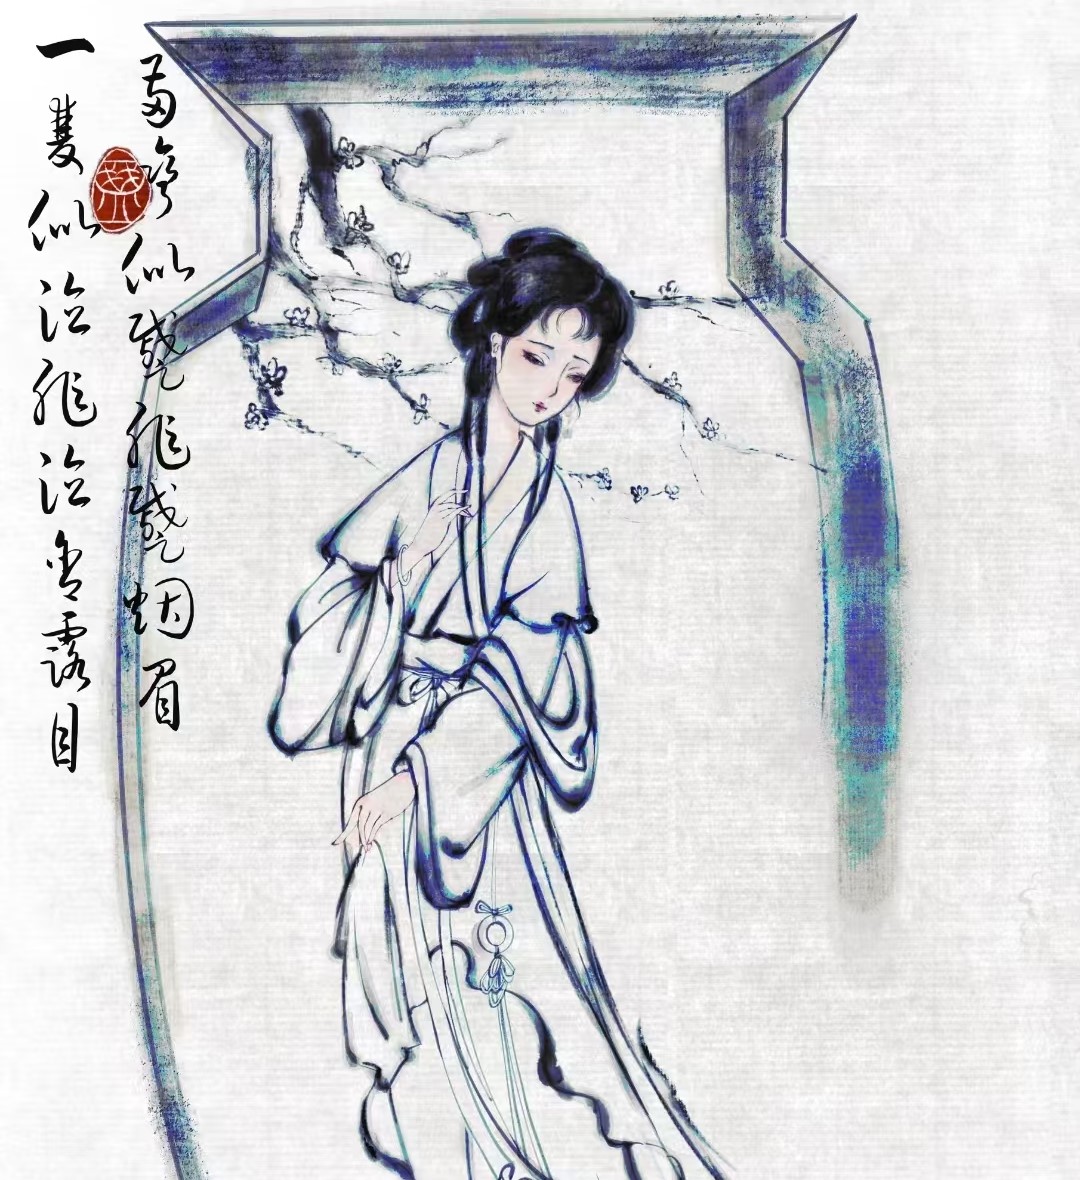 两弯似蹙非蹙烟眉
一雙似泣非泣含露目